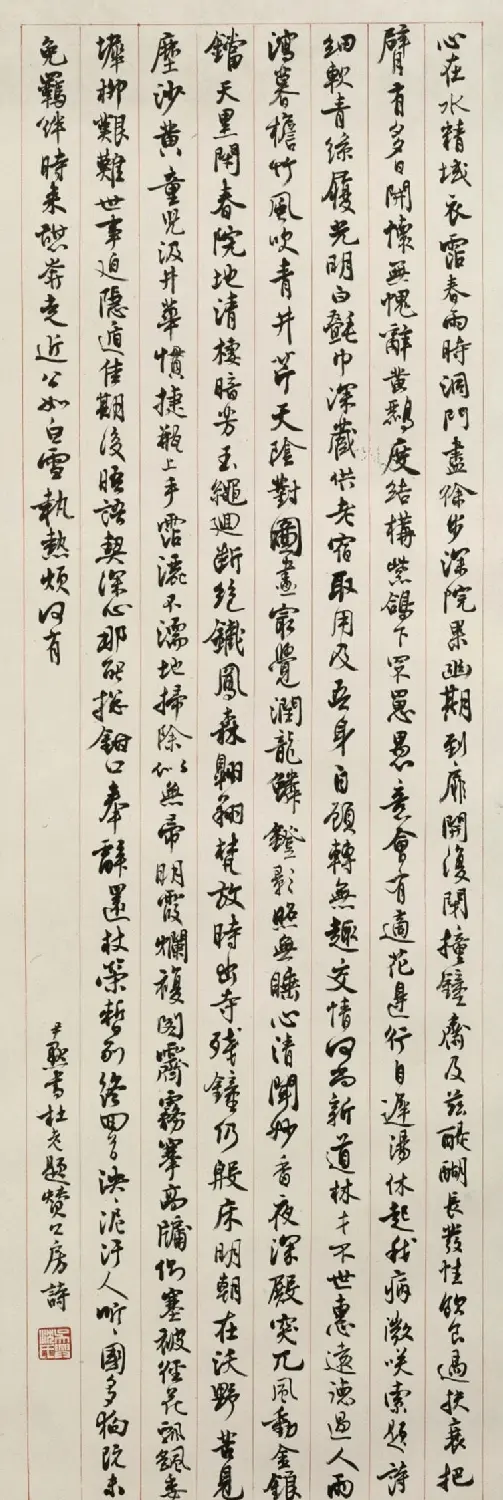 心在水精域衣霑春雨時洞門盡徐步深院果幽期到扉開復閉撞鐘齋及茲醍醐長發性飲食過扶衰把
臂有多日開懷無愧辭黃鸝度結構紫鴿下罘罳愚意會有適花邊行自遲湯休起我病微笑索題詩
細軟青絲履光明白氎巾深藏供老宿取用及吾身自顧轉無趣交情何尚新道林才不世惠遠德過人雨
瀉暮檐竹風吹青井芹天陰對圖畫最覺潤龍鱗鐙影照無睡心清聞妙香夜深殿突兀風動金鋃
鐺天黑閉春院地清棲暗芳玉繩迴斷絕鐵鳳森翱翔梵放時出寺殘鐘仍殷床明朝在沃野苦見
塵沙黃童兒汲井華慣捷瓶上手霑灑不濡地掃除似無帚明霞爛複閣霽霧搴高牖側塞被徑花飄颻委
墀柳艱難世事迫隱遁佳期後晤語契深心那能總鉗口奉辭還杖策暫別終回首泱〻泥汙人听〻國多狗既未
免羈絆時來憩奔走近公如白雪執熱煩何有
尹默書杜老題贊公房詩